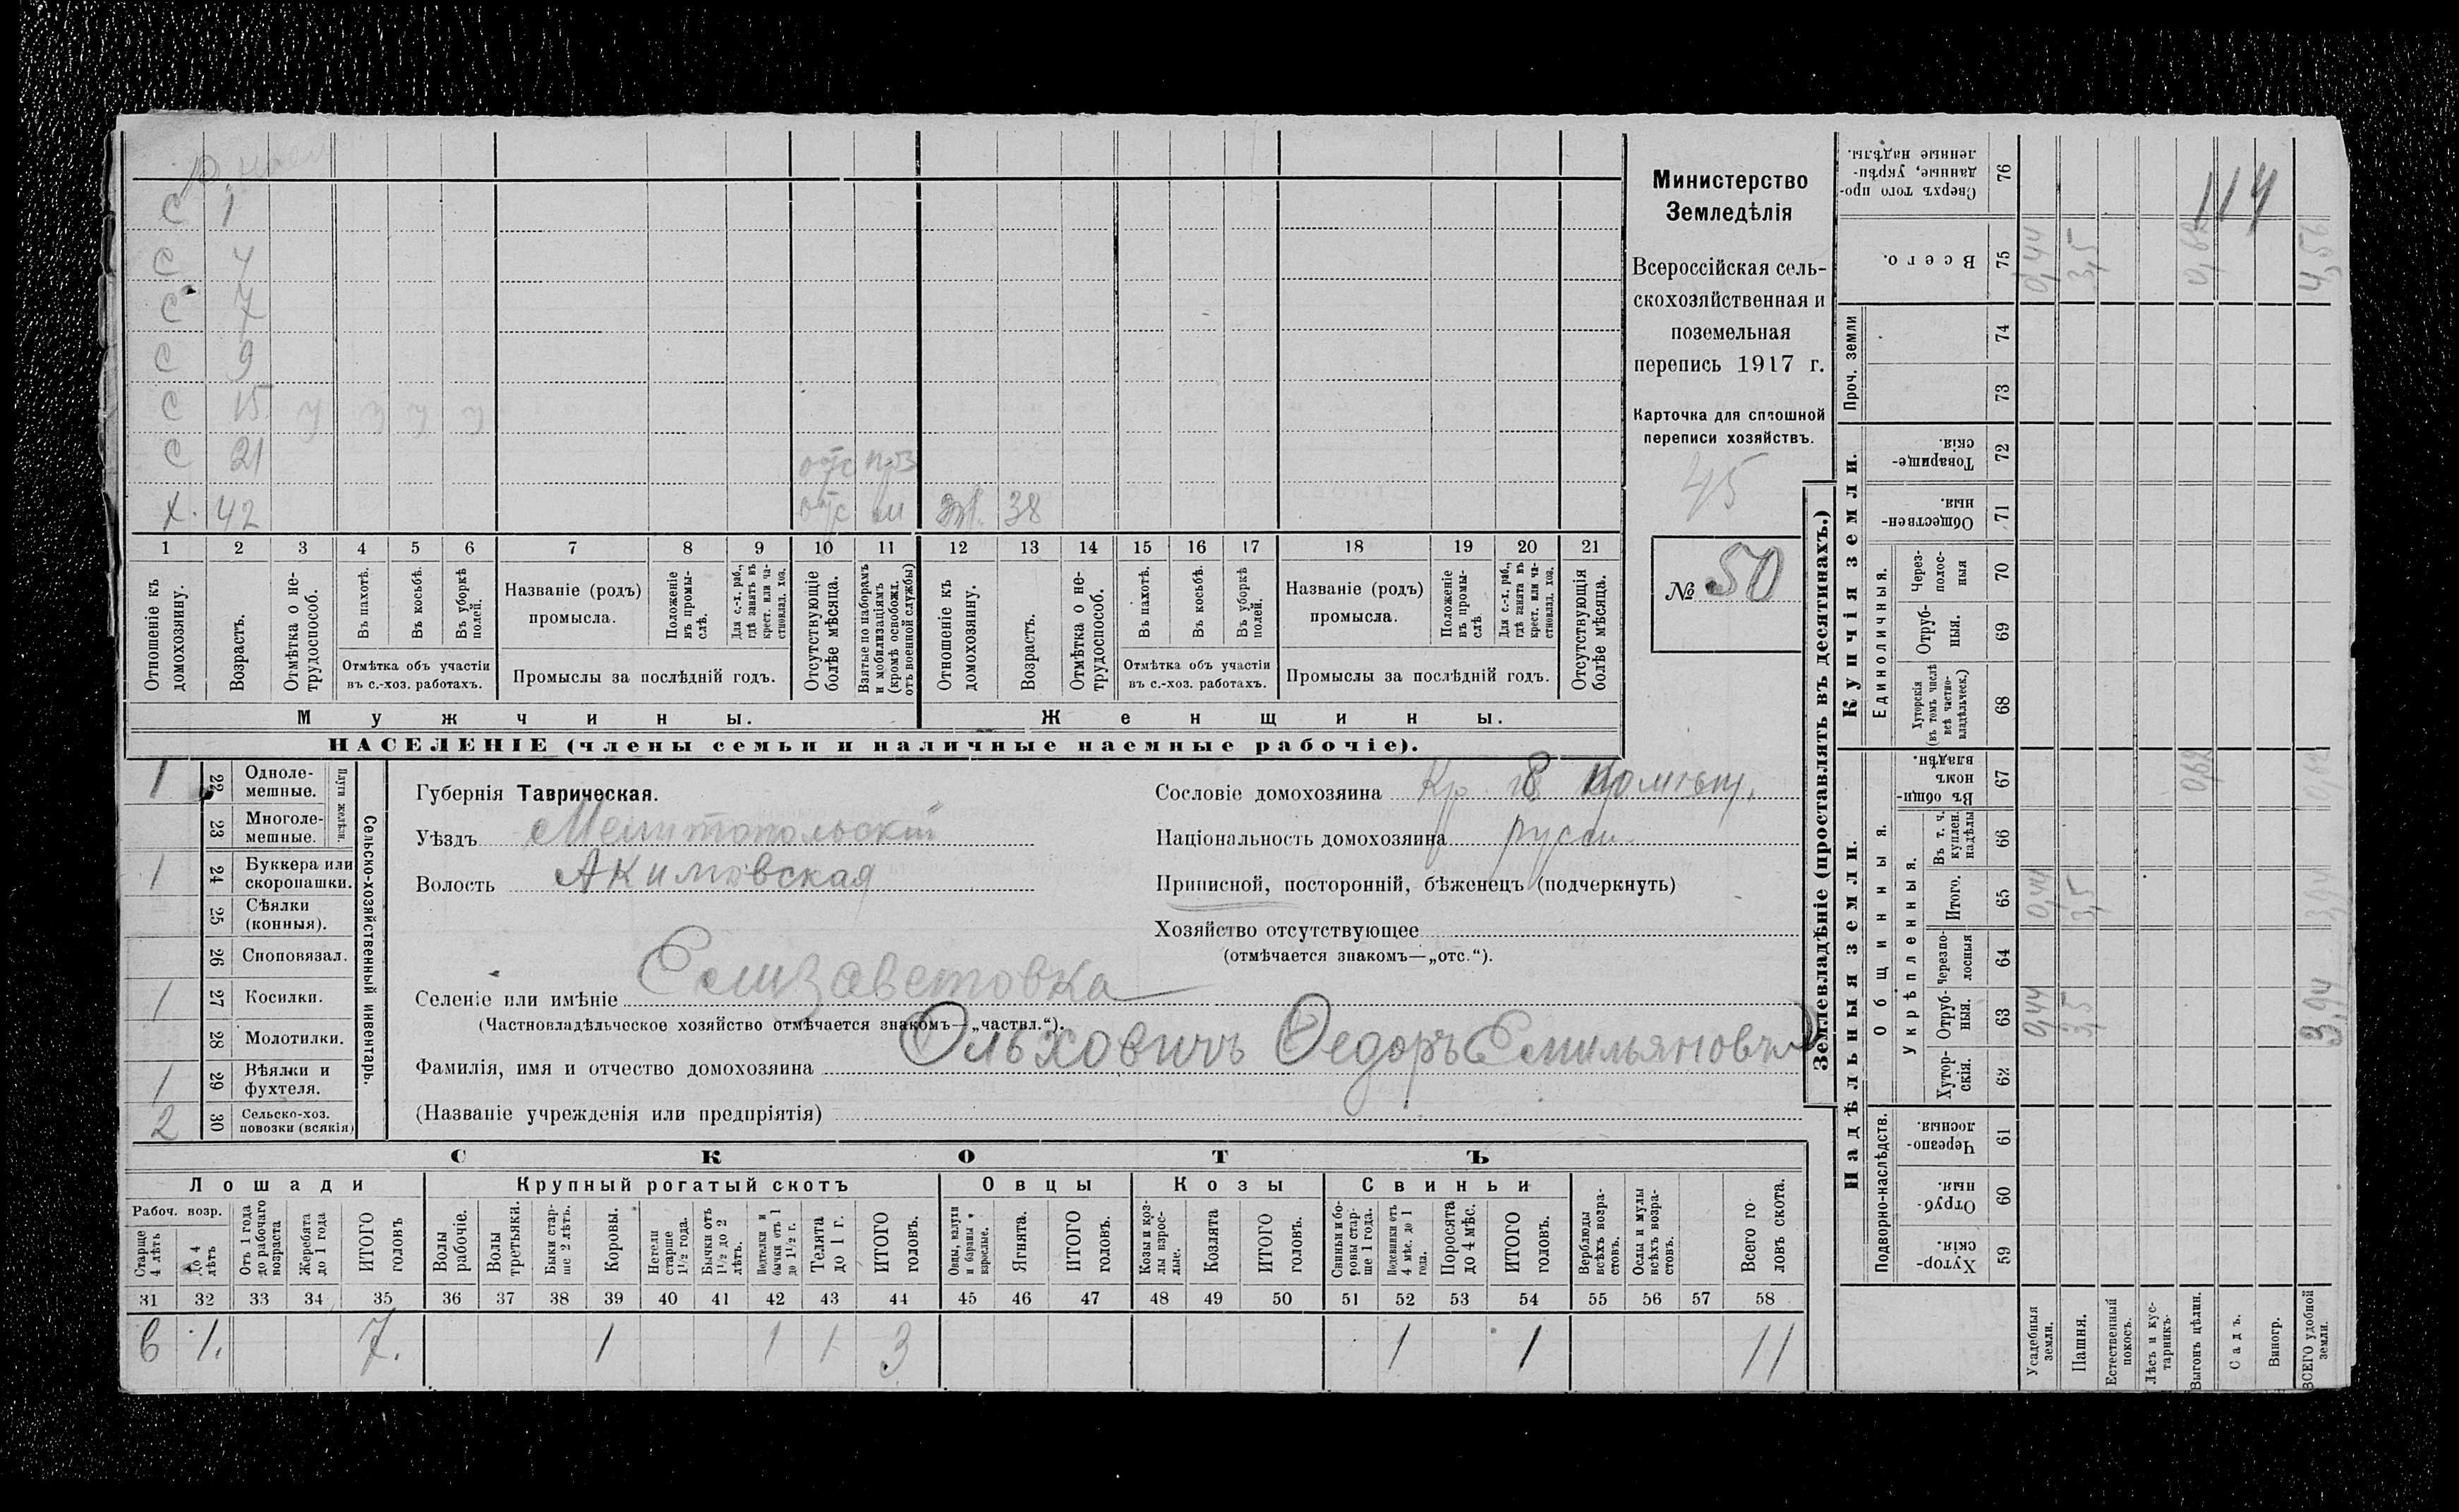 С 1
С 4
С 7
С 9
С 15 у у у у
С 21 отс прз
х. 42 отс м 38
1 2 3 4 5 6 7 8 9 10 11 12 13 14 15 16 17 18 19 20 21
Отношеніе къ домохозяину.
Возрастъ.
Отмѣтка о не-
трудоспособ.
Въ пахотѣ.
Въ косьбѣ.
Въ уборкѣ
полей.
Отмѣтка объ участіи
въ с.-хоз. работахъ.
Названіе (родъ)
промысла.
Положеніе
въ промы-
слѣ.
Для с.-х. раб.,
гдѣ занятъ въ
крест. или ча-
стновлад. хоз.
Промыслы за послѣдній годъ.
Отсутствующіе
болѣе мѣсяца.
Взятые по наборамъ
и мобилизаціямъ
(кромѣ освобожд.
отъ военной службы)
Отношеніе къ
домохозяину.
Возрастъ.
Отмѣтка о не-
трудоспособ.
Въ пахотѣ.
Въ косьбѣ.
Въ уборкѣ
полей.
Отмѣтка объ участіи
въ с.-хоз. работахъ.
Названіе (родъ)
промысла.
Положеніе
въ промы-
слѣ.
Для с.-х. раб.,
гдѣ занята въ
крест. или ча-
стновлад. хоз.
Промыслы за послѣдній годъ.
Отсутствующія
болѣе мѣсяца.
Мужчины.
Женщины.
НАСЕЛЕНІЕ (члены семьи и наличные наемные рабочіе).
Министерство
Земледѣлія
Всероссійская сель-
скохозяйственная и
поземельная
перепись 1917 г.
Карточка для сплошной
переписи хозяйствъ.
45
№ 50
1 22 Одноле-
мешные.
23 Многоле-
мешные.
Плуги желѣзн.
1 24 Буккера или
скоропашки.
25 Сѣялки
(конныя).
26 Сноповязал.
1 27 Косилки.
28 Молотилки.
1 29 Вѣялки и
фухтеля.
2 30 Сельско-хоз.
повозки (всякія)
Сельско-хозяйственный инвентарь.
Губернія Таврическая.
Уѣздъ Мелитопольскій
Волость Акимовская
Сословіе домохозяина Кр.
Національность домохозяина русск.
Приписной, посторонній, бѣженецъ (подчеркнуть)
Хозяйство отсутствующее
(отмѣчается знакомъ—„отс.“).
Селеніе или имѣніе Елизаветовка
(Частновладѣльческое хозяйство отмѣчается знакомъ—„частвл.“).
Фамилія, имя и отчество домохозяина Ольховичъ Ѳедоръ Емильяновичъ
(Названіе учрежденія или предпріятія)
СКОТЪ
Лошади Крупный рогатый скотъ Овцы Козы Свиньи
Рабоч. возр.
Старше
4 лѣтъ
До 4
лѣтъ
Отъ 1 года
до рабочаго
возраста
Жеребята
до 1 года
ИТОГО
головъ
Волы
рабочіе.
Волы
третьяки.
Быки стар-
ше 2 лѣтъ.
Коровы.
Нетели
старше
1½ года.
Бычки отъ
1½ до 2
лѣтъ.
Подтелки и
бычки отъ 1
до 1½ г.
Телята
до 1 г.
ИТОГО
головъ.
Овцы, валухи
и бараны
взрослые.
Ягнята.
ИТОГО
головъ.
Козы и коз-
лы взрос-
лые.
Козлята
ИТОГО
головъ.
Свиньи и бо-
ровы стар-
ше 1 года.
Подсвинки отъ
4 мѣс. до 1
года.
Поросята
до 4 мѣс.
ИТОГО
головъ.
Верблюды
всѣхъ возра-
стовъ.
Ослы и мулы
всѣхъ возра-
стовъ.
Всего го-
ловъ скота.
31 32 33 34 35 36 37 38 39 40 41 42 43 44 45 46 47 48 49 50 51 52 53 54 55 56 57 58
6 1. 7. 1 1 1 3 1 1 11
Землевладѣніе (проставлять въ десятинахъ.)
Надѣльныя земли.
Купчія земли.
Проч. земли
Подворно-наслѣдств.
Общинныя.
Укрѣпленныя.
Единоличныя.
Сверхъ того про-
данные, укрѣп-
ленные надѣлы. 76
114
Всего. 75 0,44 3,5 0,62 4,56
74
73
Товарище-
скія. 72
Обществен-
ныя. 71
Через-
полос-
ныя 70
Отруб-
ныя. 69
Хуторскія
(въ томъ числѣ
всѣ частно-
владѣльческ.) 68
Въ общи-
номъ
владѣн. 67 0,62 0,62
Въ т. ч.
куплен.
надѣлы 66
Итого. 65 0,44 3,5 3,94
Черезпо-
лосныя 64
Отруб-
ныя. 63 0,44 3,5 3,94
Хутор-
скія. 62
Черезпо-
лосныя. 61
Отруб-
ныя. 60
Хутор-
скія. 59
Усадебныя
земли.
Пашня.
Естественный
покосъ.
Лѣсъ и кус-
тарникъ.
Выгонъ цѣлин.
Садъ.
Виногр.
ВСЕГО удобной
земли.